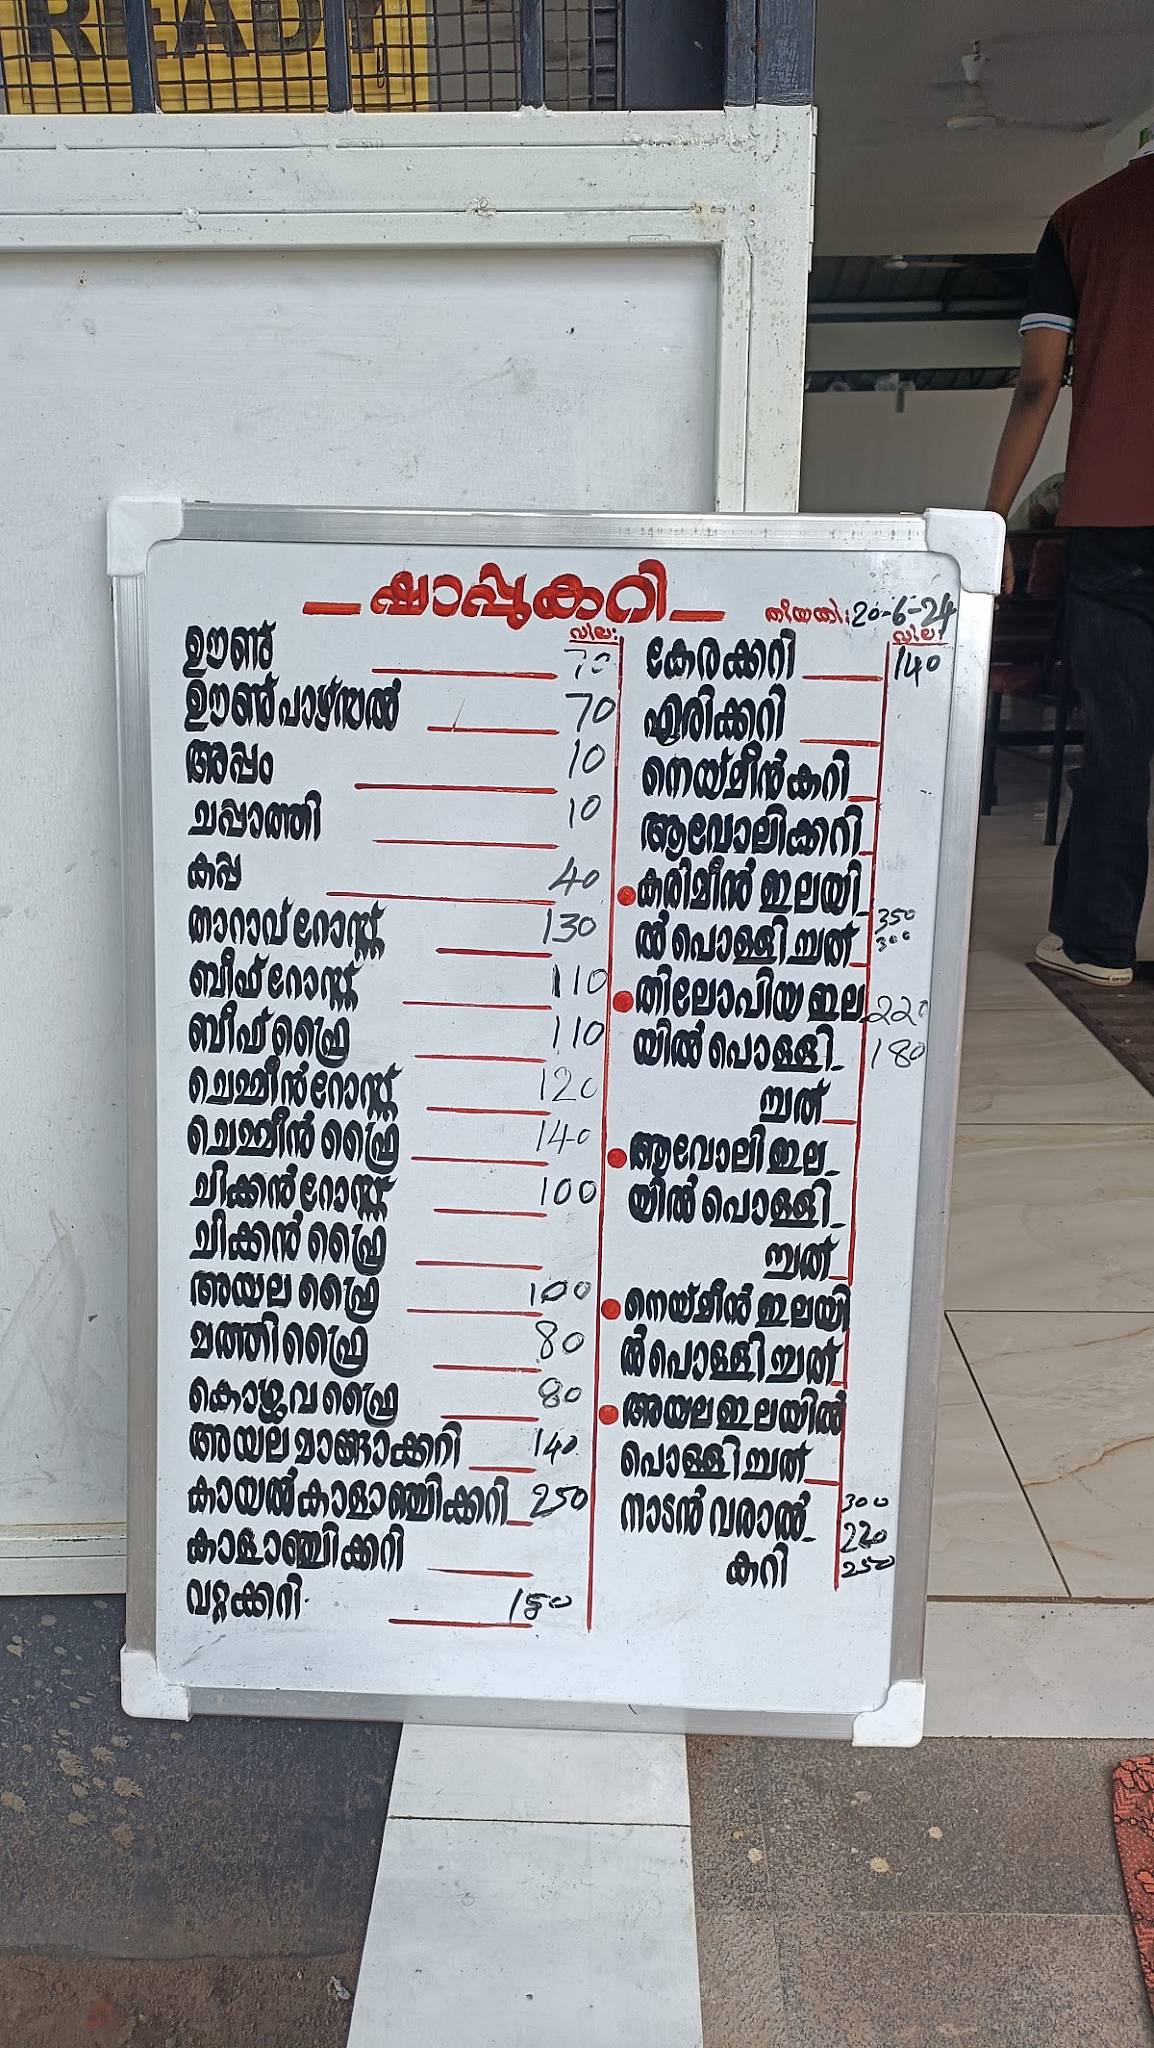 READY
ഷാപ്പുകറി
തീയതി: 20-6-24
വില:
ഊണ് 70
ഊണ് പാഴ്സൽ 70
അപ്പം 10
ചപ്പാത്തി 10
കപ്പ 40
താറാവ് റോസ്റ്റ് 130
ബീഫ് റോസ്റ്റ് 110
ബീഫ് ഫ്രൈ 110
ചെമ്മീൻ റോസ്റ്റ് 120
ചെമ്മീൻ ഫ്രൈ 140
ചിക്കൻ റോസ്റ്റ് 100
ചിക്കൻ ഫ്രൈ
അയല ഫ്രൈ 100
മത്തി ഫ്രൈ 80
കൊഴുവ ഫ്രൈ 80
അയല മാങ്ങാക്കറി 140
കായൽ കാളാഞ്ചിക്കറി 250
കാളാഞ്ചിക്കറി
വറ്റക്കറി 150
വില:
കേരക്കറി 140
ഏരിക്കറി
നെയ്മീൻകറി
ആവോലിക്കറി
കരിമീൻ ഇലയി
ൽ പൊള്ളിച്ചത് 350
300
തിലോപിയ ഇല 220
യിൽ പൊള്ളി 180
ച്ചത്
ആവോലി ഇല
യിൽ പൊള്ളി
ച്ചത്
നെയ്മീൻ ഇലയി
ൽ പൊള്ളിച്ചത്
അയല ഇലയിൽ
പൊള്ളിച്ചത്
നാടൻ വരാൽ 300
220
കറി 250